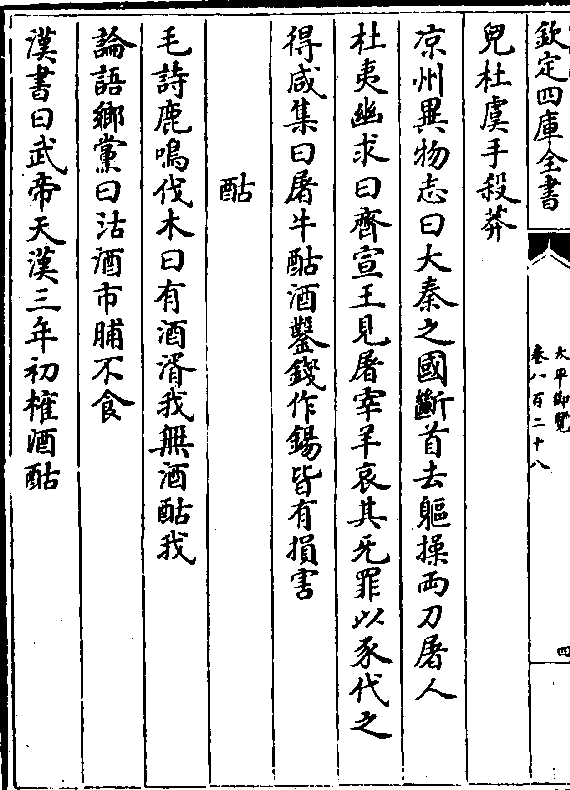 欽定四庫全書
太平御覽
卷八百二十八
四
兒杜虞手殺莽
凉州異物志曰大秦之國斷首去軀操兩刀屠人
杜夷幽求曰齊宣王見屠宰羊哀其死罪以豕代之
得咸集曰屠牛酤酒鑿錢作錫皆有損害
酤
毛詩鹿鳴伐木曰有酒湑我無酒酤我
論語鄉黨曰沽酒市脯不食
漢書曰武帝天漢三年初榷酒酤